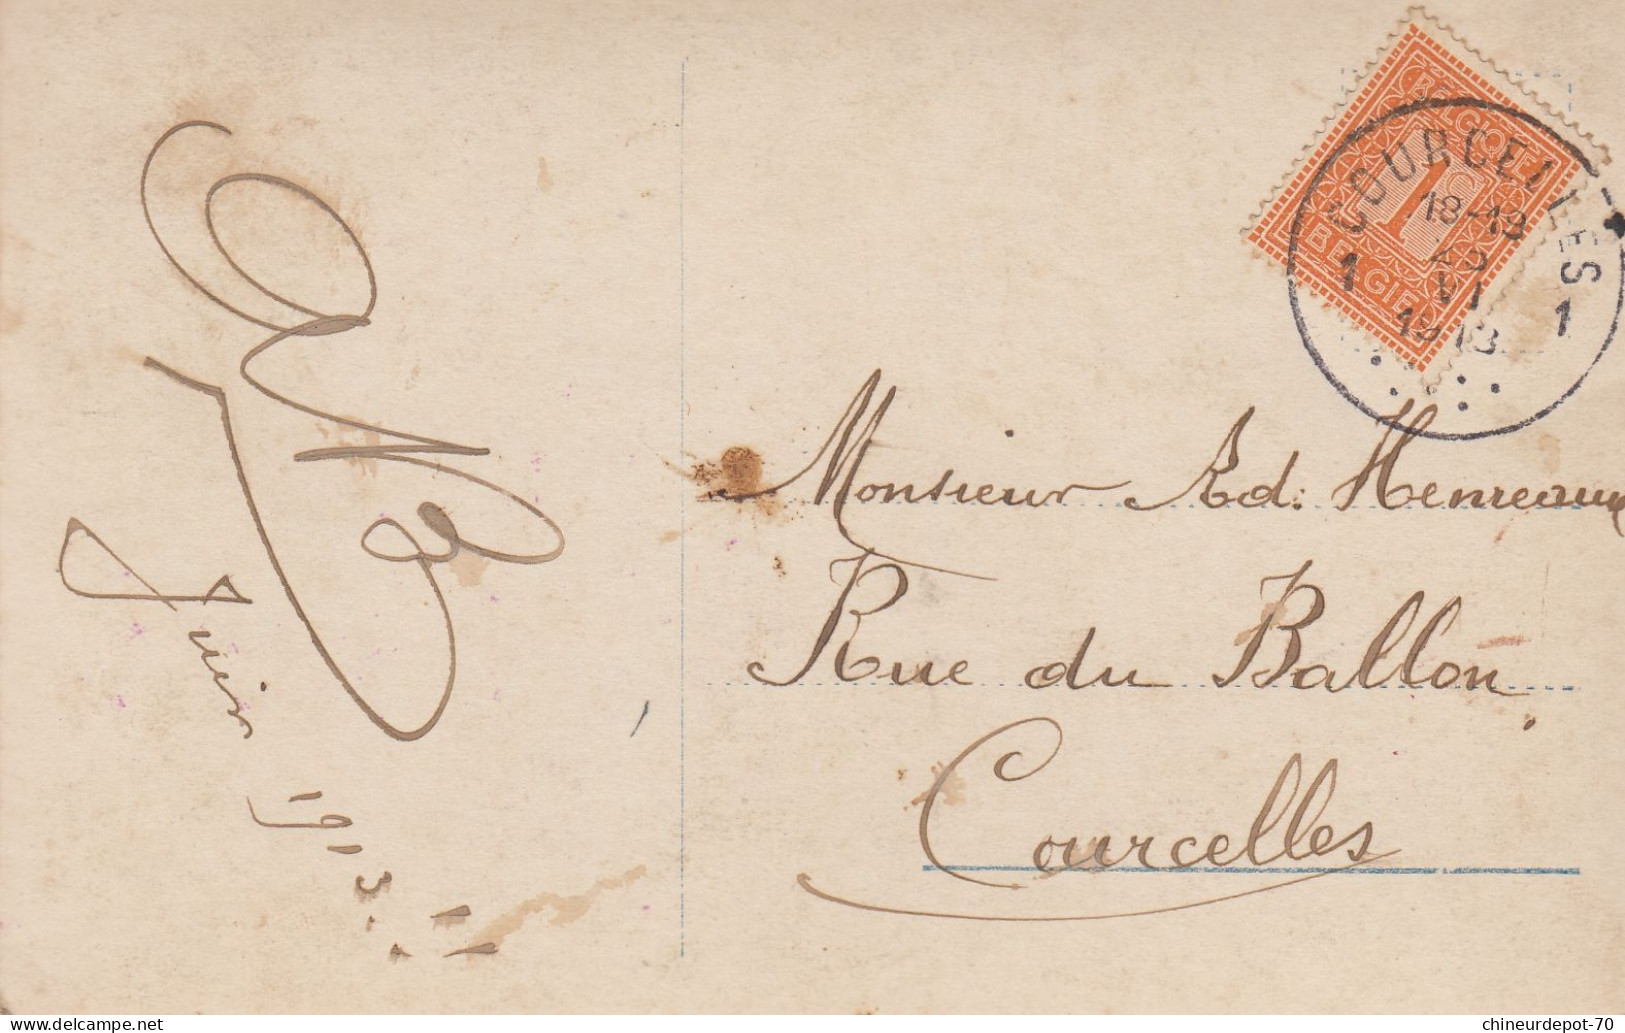 Juin 1913.
BELGIQUE
1c
BELGIË
COURCELLES
1 1
18-19
VI
1913
Monsieur Ad: Henreaux
Rue du Ballon.
Courcelles
chineurdepot-70